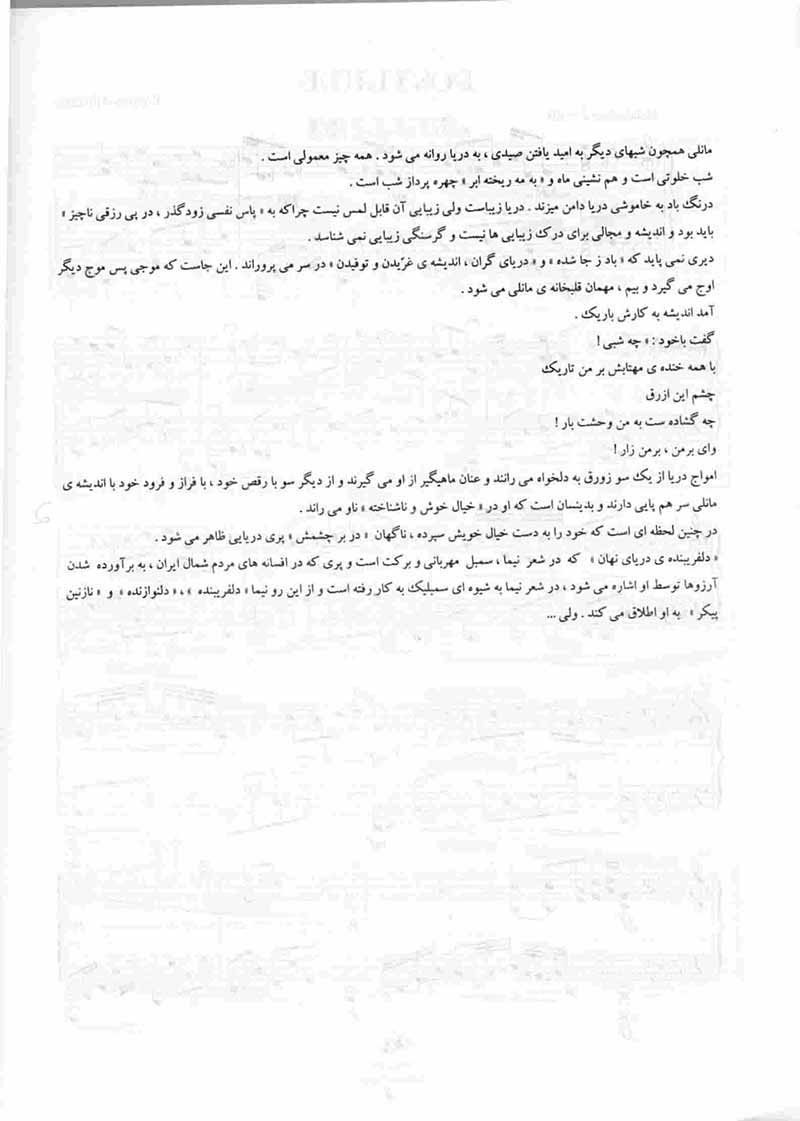 مانلی همچون شبهای دیگر به امید یافتن صیدی ، به دریا روانه می شود . همه چیز معمولی است .
شب خلوتی است و هم نشینی ماه و « به مه ریخته ابر » چهره پرداز شب است .
درنگ باد به خاموشی دریا دامن میزند . دریا زیباست ولی زیبایی آن قابل لمس نیست چراکه به « پاس نفسی زودگذر ، در پی رزقی ناچیز »
باید بود و اندیشه و مجالی برای درک زیبایی ها نیست و گرسنگی زیبایی نمی شناسد .
دیری نمی پاید که « باد ز جا شده » و « دریای گران ، اندیشه ی غرّیدن و توفیدن » در سر می پروراند . این جاست که موجی پس موج دیگر
اوج می گیرد و بیم ، مهمان قلبخانه ی مانلی می شود .
آمد اندیشه به کارش باریک .
گفت باخود : « چه شبی !
با همه خنده ی مهتابش بر من تاریک
چشم این ازرق
چه گشاده ست به من وحشت بار !
وای برمن ، برمن زار !
امواج دریا از یک سو زورق به دلخواه می رانند و عنان ماهیگیر از او می گیرند و از دیگر سو با رقص خود ، با فراز و فرود خود با اندیشه ی
مانلی سر هم پایی دارند و بدینسان است که او در « خیال خوش و ناشناخته » ناو می راند .
در چنین لحظه ای است که خود را به دست خیال خویش سپرده ، ناگهان « در بر چشمش » پری دریایی ظاهر می شود .
« دلفریبنده ی دریای نهان » که در شعر نیما ، سمبل مهربانی و برکت است و پری که در افسانه های مردم شمال ایران ، به برآورده شدن
آرزوها توسط او اشاره می شود ، در شعر نیما به شیوه ای سمبلیک به کار رفته است و از این رو نیما « دلفریبنده » ، « دلنوازنده » و « نازنین
پیکر » به او اطلاق می کند . ولی ...